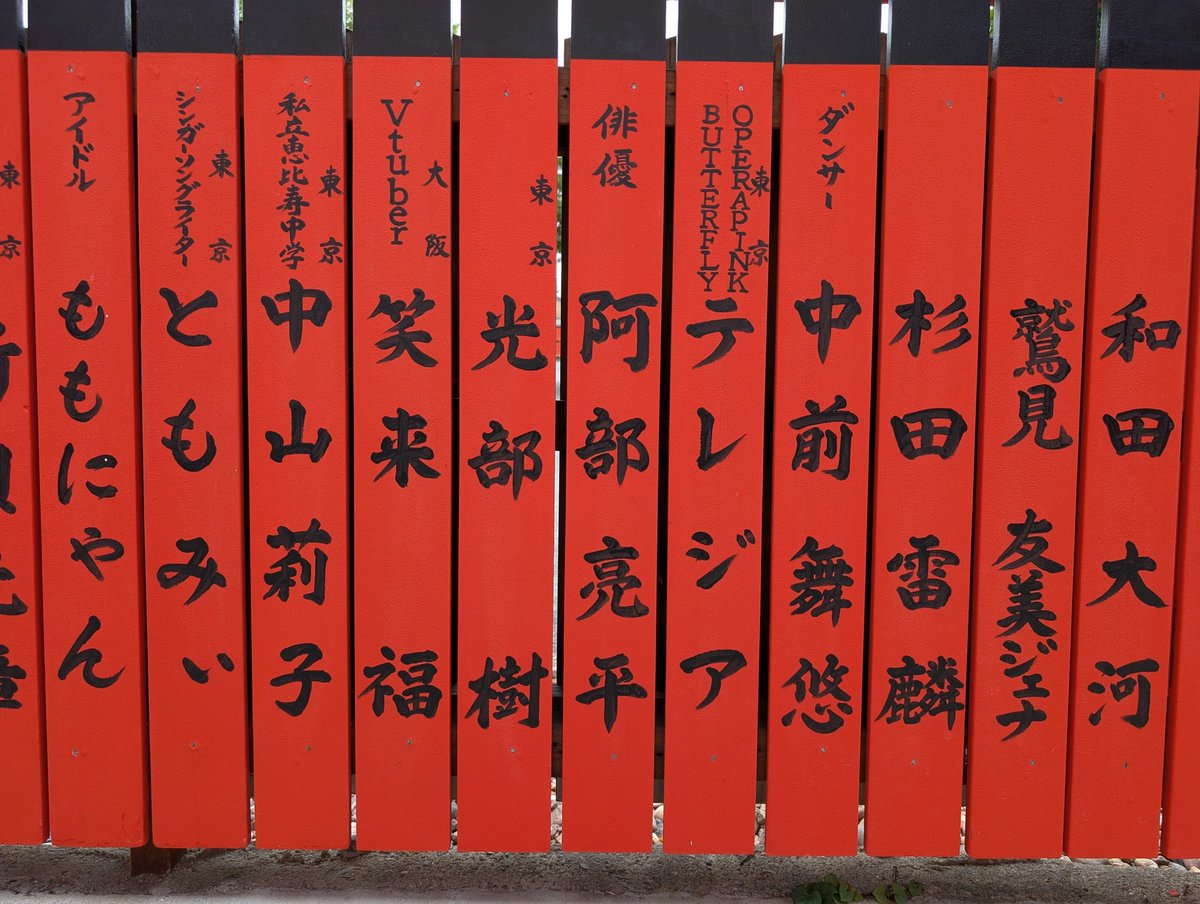 和田大河
鷲見 友美ジェナ
杉田雷麟
ダンサー
中前舞悠
東京
OPERAPINK
BUTTERFLY
テレジア
俳優
阿部亮平
東京
光部樹
大阪
Vtuber
笑来福
東京
私立恵比寿中学
中山莉子
東京
シンガーソングライター
ともみぃ
アイドル
ももにゃん
東京